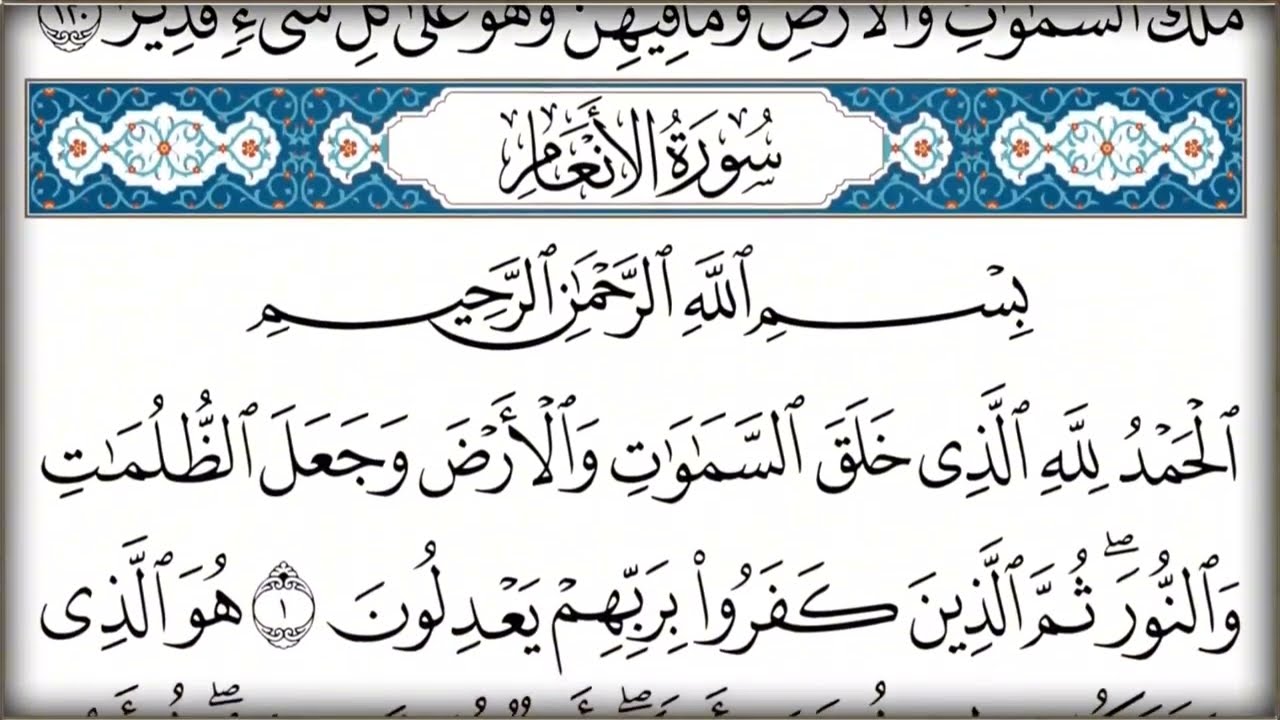 مُلْكُ ٱلسَّمَٰوَٰتِ وَٱلْأَرْضِ وَمَا فِيهِنَّ وَهُوَ عَلَىٰ كُلِّ شَىْءٍ قَدِيرٌ ١٢٠
سُورَةُ الأَنْعَامِ
بِسْمِ ٱللَّهِ ٱلرَّحْمَٰنِ ٱلرَّحِيمِ
ٱلْحَمْدُ لِلَّهِ ٱلَّذِى خَلَقَ ٱلسَّمَٰوَٰتِ وَٱلْأَرْضَ وَجَعَلَ ٱلظُّلُمَٰتِ
وَٱلنُّورَ ۖ ثُمَّ ٱلَّذِينَ كَفَرُوا۟ بِرَبِّهِمْ يَعْدِلُونَ ١ هُوَ ٱلَّذِى